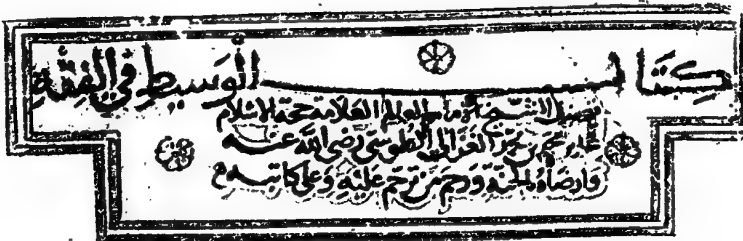 كتاب الوسيط في الفقه
الشيخ الامام العالم العلامة حجة الاسلام
محمد بن محمد الغزالي الطوسي رضي الله عنه
وارضاه الجنة ورحم من ترحم عليه وعلى كاتبه